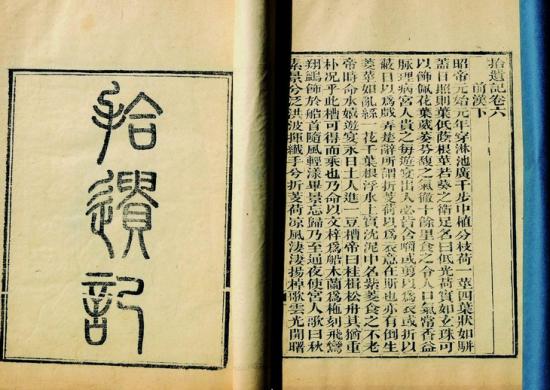 拾遺記
拾遺記卷六
前漢下
昭帝元始元年穿淋池廣千步中植分枝荷一莖四葉狀如駢
蓋日照則葉低蔭根莖若葵之衛足名曰低光荷實如玄珠可
以飾佩花葉葳萎芬馥之氣徹十餘里食之令人口氣常香益
脉理病宮人貴之每遊宴出入必皆含嚼或剪以爲衣或折以
蔽日以爲戲弄楚辭所謂折芰荷以爲衣意在斯也亦有倒生
菱莖如亂絲一花千葉根浮水上實沈泥中名紫菱食之不老
帝時命水嬉遊宴永日土人進一豆槽帝曰桂楫松舟其猶重
朴况乎此槽可得而乘也乃命以文梓爲船木蘭爲柂刻飛鸞
翔鷁飾於船首隨風輕漾畢景忘歸乃至通夜使宮人歌曰秋
素景兮泛洪波揮纖手兮折芰荷涼風淒淒揚棹歌雲光開曙